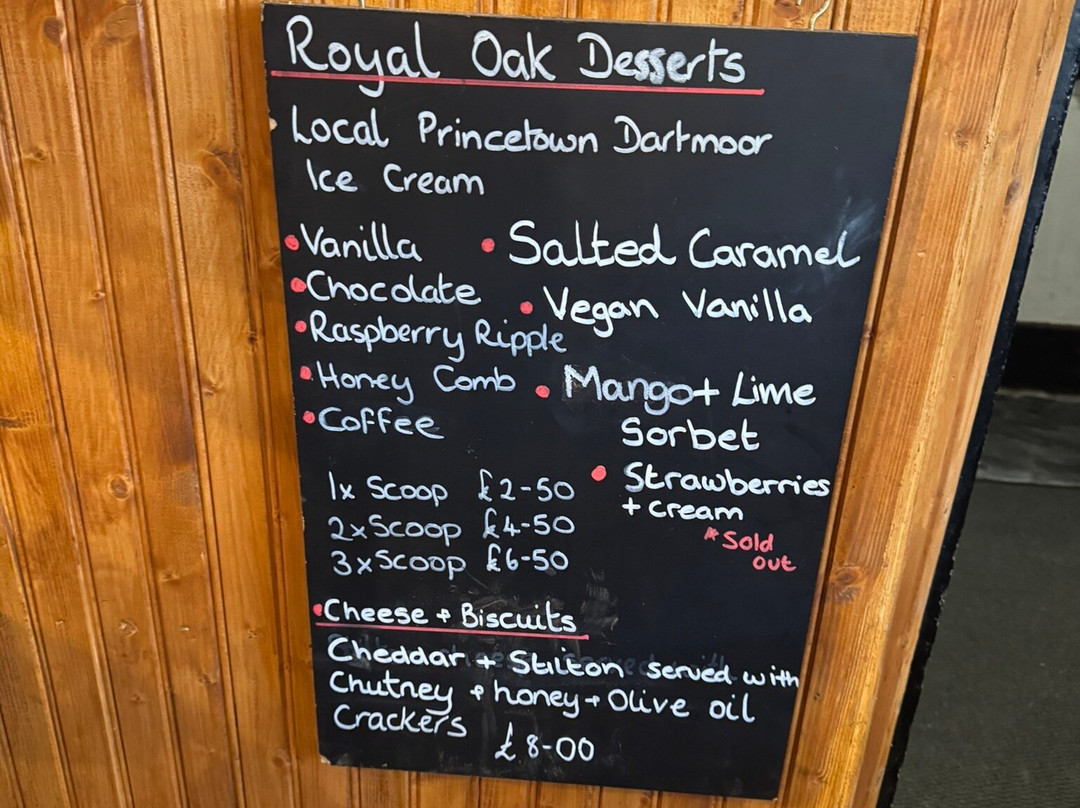 Royal Oak Desserts
Local Princetown Dartmoor
Ice Cream
• Vanilla
• Chocolate
• Raspberry Ripple
• Honey Comb
• Coffee
• Salted Caramel
• Vegan Vanilla
• Mango + Lime
Sorbet
• Strawberries
+ cream
* Sold
out
1x Scoop £2-50
2x Scoop £4-50
3x Scoop £6-50
• Cheese + Biscuits
Cheddar + Stilton served with
Chutney + honey + Olive oil
Crackers
£8-00